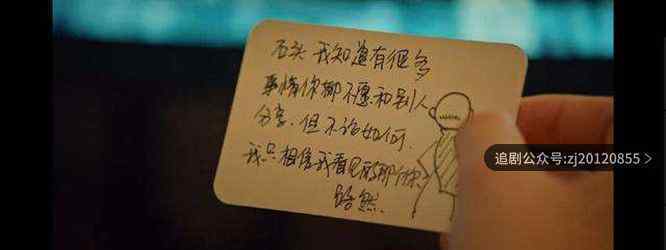 石头 我知道有很多
事情你都不愿和别人
分享.但不论如何.
我只相信我看见的那个你.
皓然.
追剧公众号:zj20120855 >